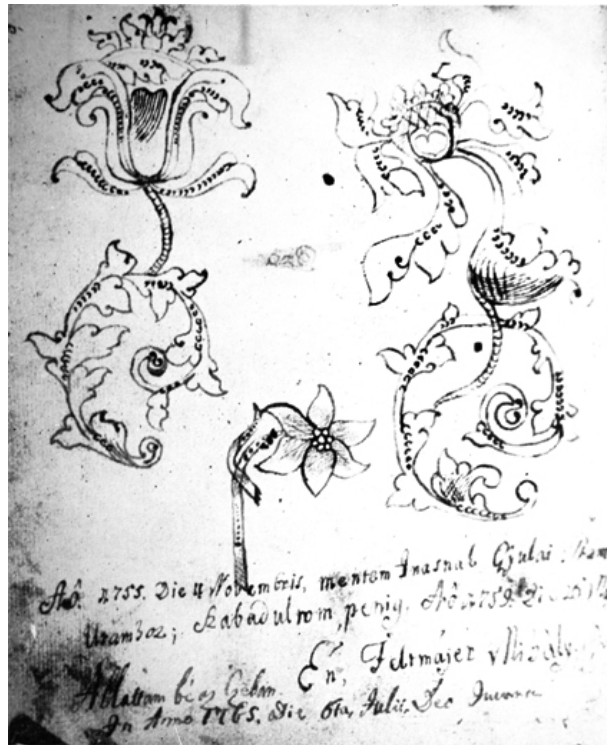 Aō. 1755. Die 4 Novembris, mentem Inasnak Gyulai
Uramhoz; Szabadultom, penig, Aō. 1759. Die
Én, Feltmájer Mihály
Állattam bé az
In Anno 1765. Die 6ta Julii. Deo Juvante